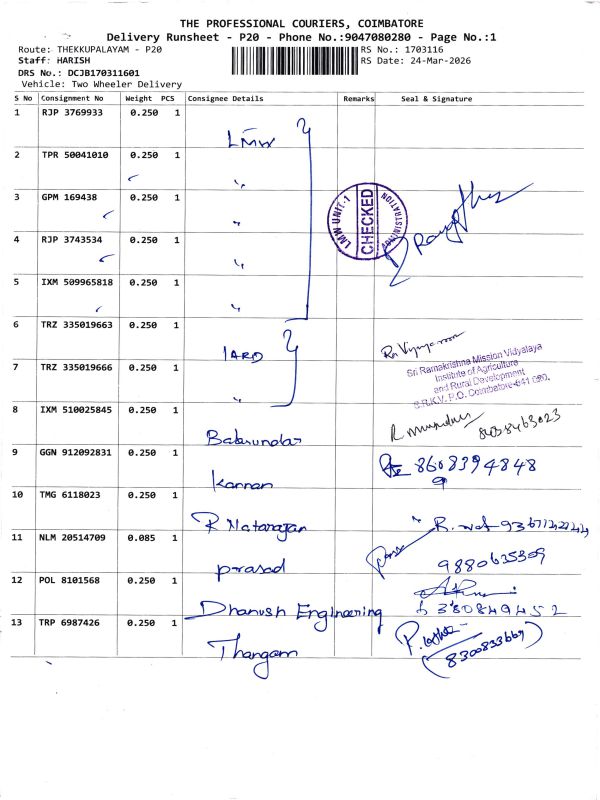 THE PROFESSIONAL COURIERS, COIMBATORE
Delivery Runsheet - P20 - Phone No.:9047080280 - Page No.:1
Route: THEKKUPALAYAM - P20
RS No.: 1703116
Staff: HARISH
RS Date: 24-Mar-2026
DRS No.: DCJB170311601
Vehicle: Two Wheeler Delivery
S No Consignment No Weight PCS Consignee Details Remarks Seal & Signature
1 RJP 3769933 0.250 1 LMW
2 TPR 50041010 0.250 1 "
3 GPM 169438 0.250 1 "
LMW UNIT-1 CHECKED ADMINISTRATION
4 RJP 3743534 0.250 1 "
5 IXM 509965818 0.250 1 "
6 TRZ 335019663 0.250 1 IARD
Sri Ramakrishna Mission Vidyalaya
Institute of Agriculture
and Rural Development
S.R.K.V. P.O. Coimbatore-641 020.
7 TRZ 335019666 0.250 1 "
8 IXM 510025845 0.250 1
9 GGN 912092831 0.250 1 Kannan 8608394848
10 TMG 6118023 0.250 1 R Natarajan
11 NLM 20514709 0.085 1 prasad 9880635309
12 POL 8101568 0.250 1 Dhanush Engineering 6380849452
13 TRP 6987426 0.250 1 Thangam